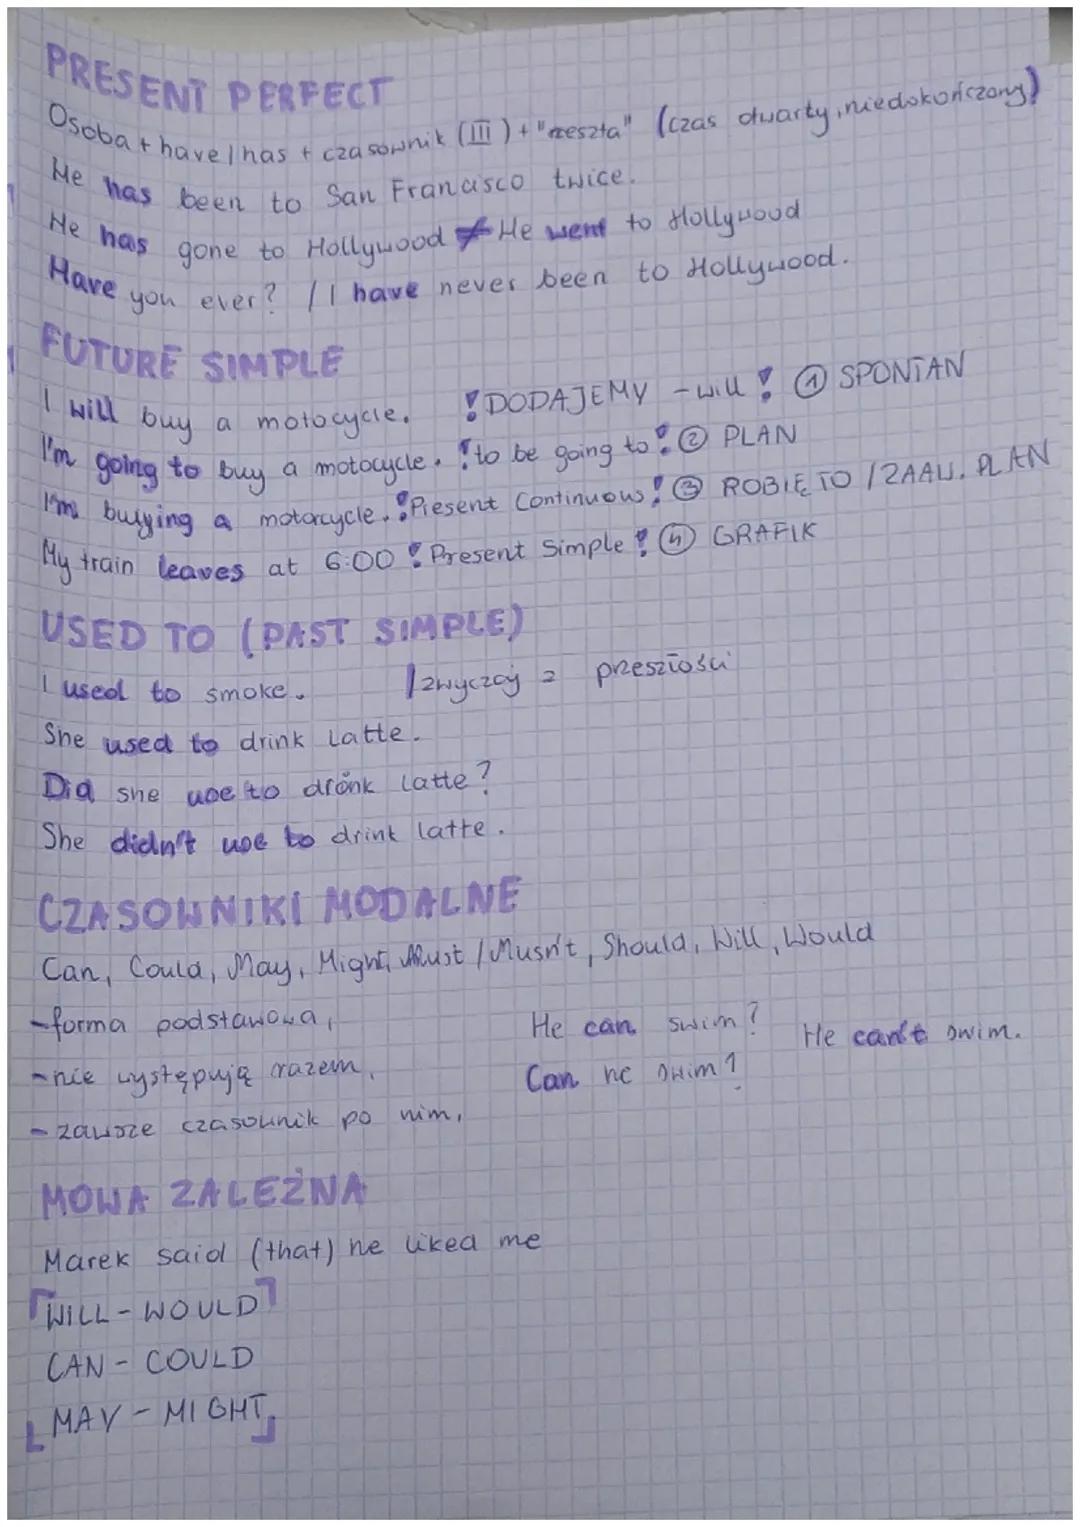 PRESENT PERFECT
Osoba + have/has + czasownik (III) + "reszta" (czas otwarty, niedokończony)
He has been to San Francisco twice.
He has gone to Hollywood ≠ He went to Hollywood
Have you ever? / I have never been to Hollywood.
FUTURE SIMPLE
I will buy a motocycle. ! DODAJEMY - will ! ① SPONTAN
I'm going to buy a motocycle. ! to be going to ! ② PLAN
I'm buying a motorcycle. ! Present Continuous ! ③ ROBIĘ TO / ZAAW. PLAN
My train leaves at 6:00 ! Present Simple ! ④ GRAFIK
USED TO (PAST SIMPLE)
I used to smoke. / zwyczaj z przeszłości
She used to drink latte.
Did she use to drink latte?
She didn't use to drink latte.
CZASOWNIKI MODALNE
Can, Could, May, Might, Must / Musn't, Should, Will, Would
- forma podstawowa,
He can swim? He can't swim.
- nie występują razem,
Can he swim?
- zawsze czasownik po nim,
MOWA ZALEŻNA
Marek said (that) he liked me
WILL - WOULD
CAN - COULD
MAY - MIGHT